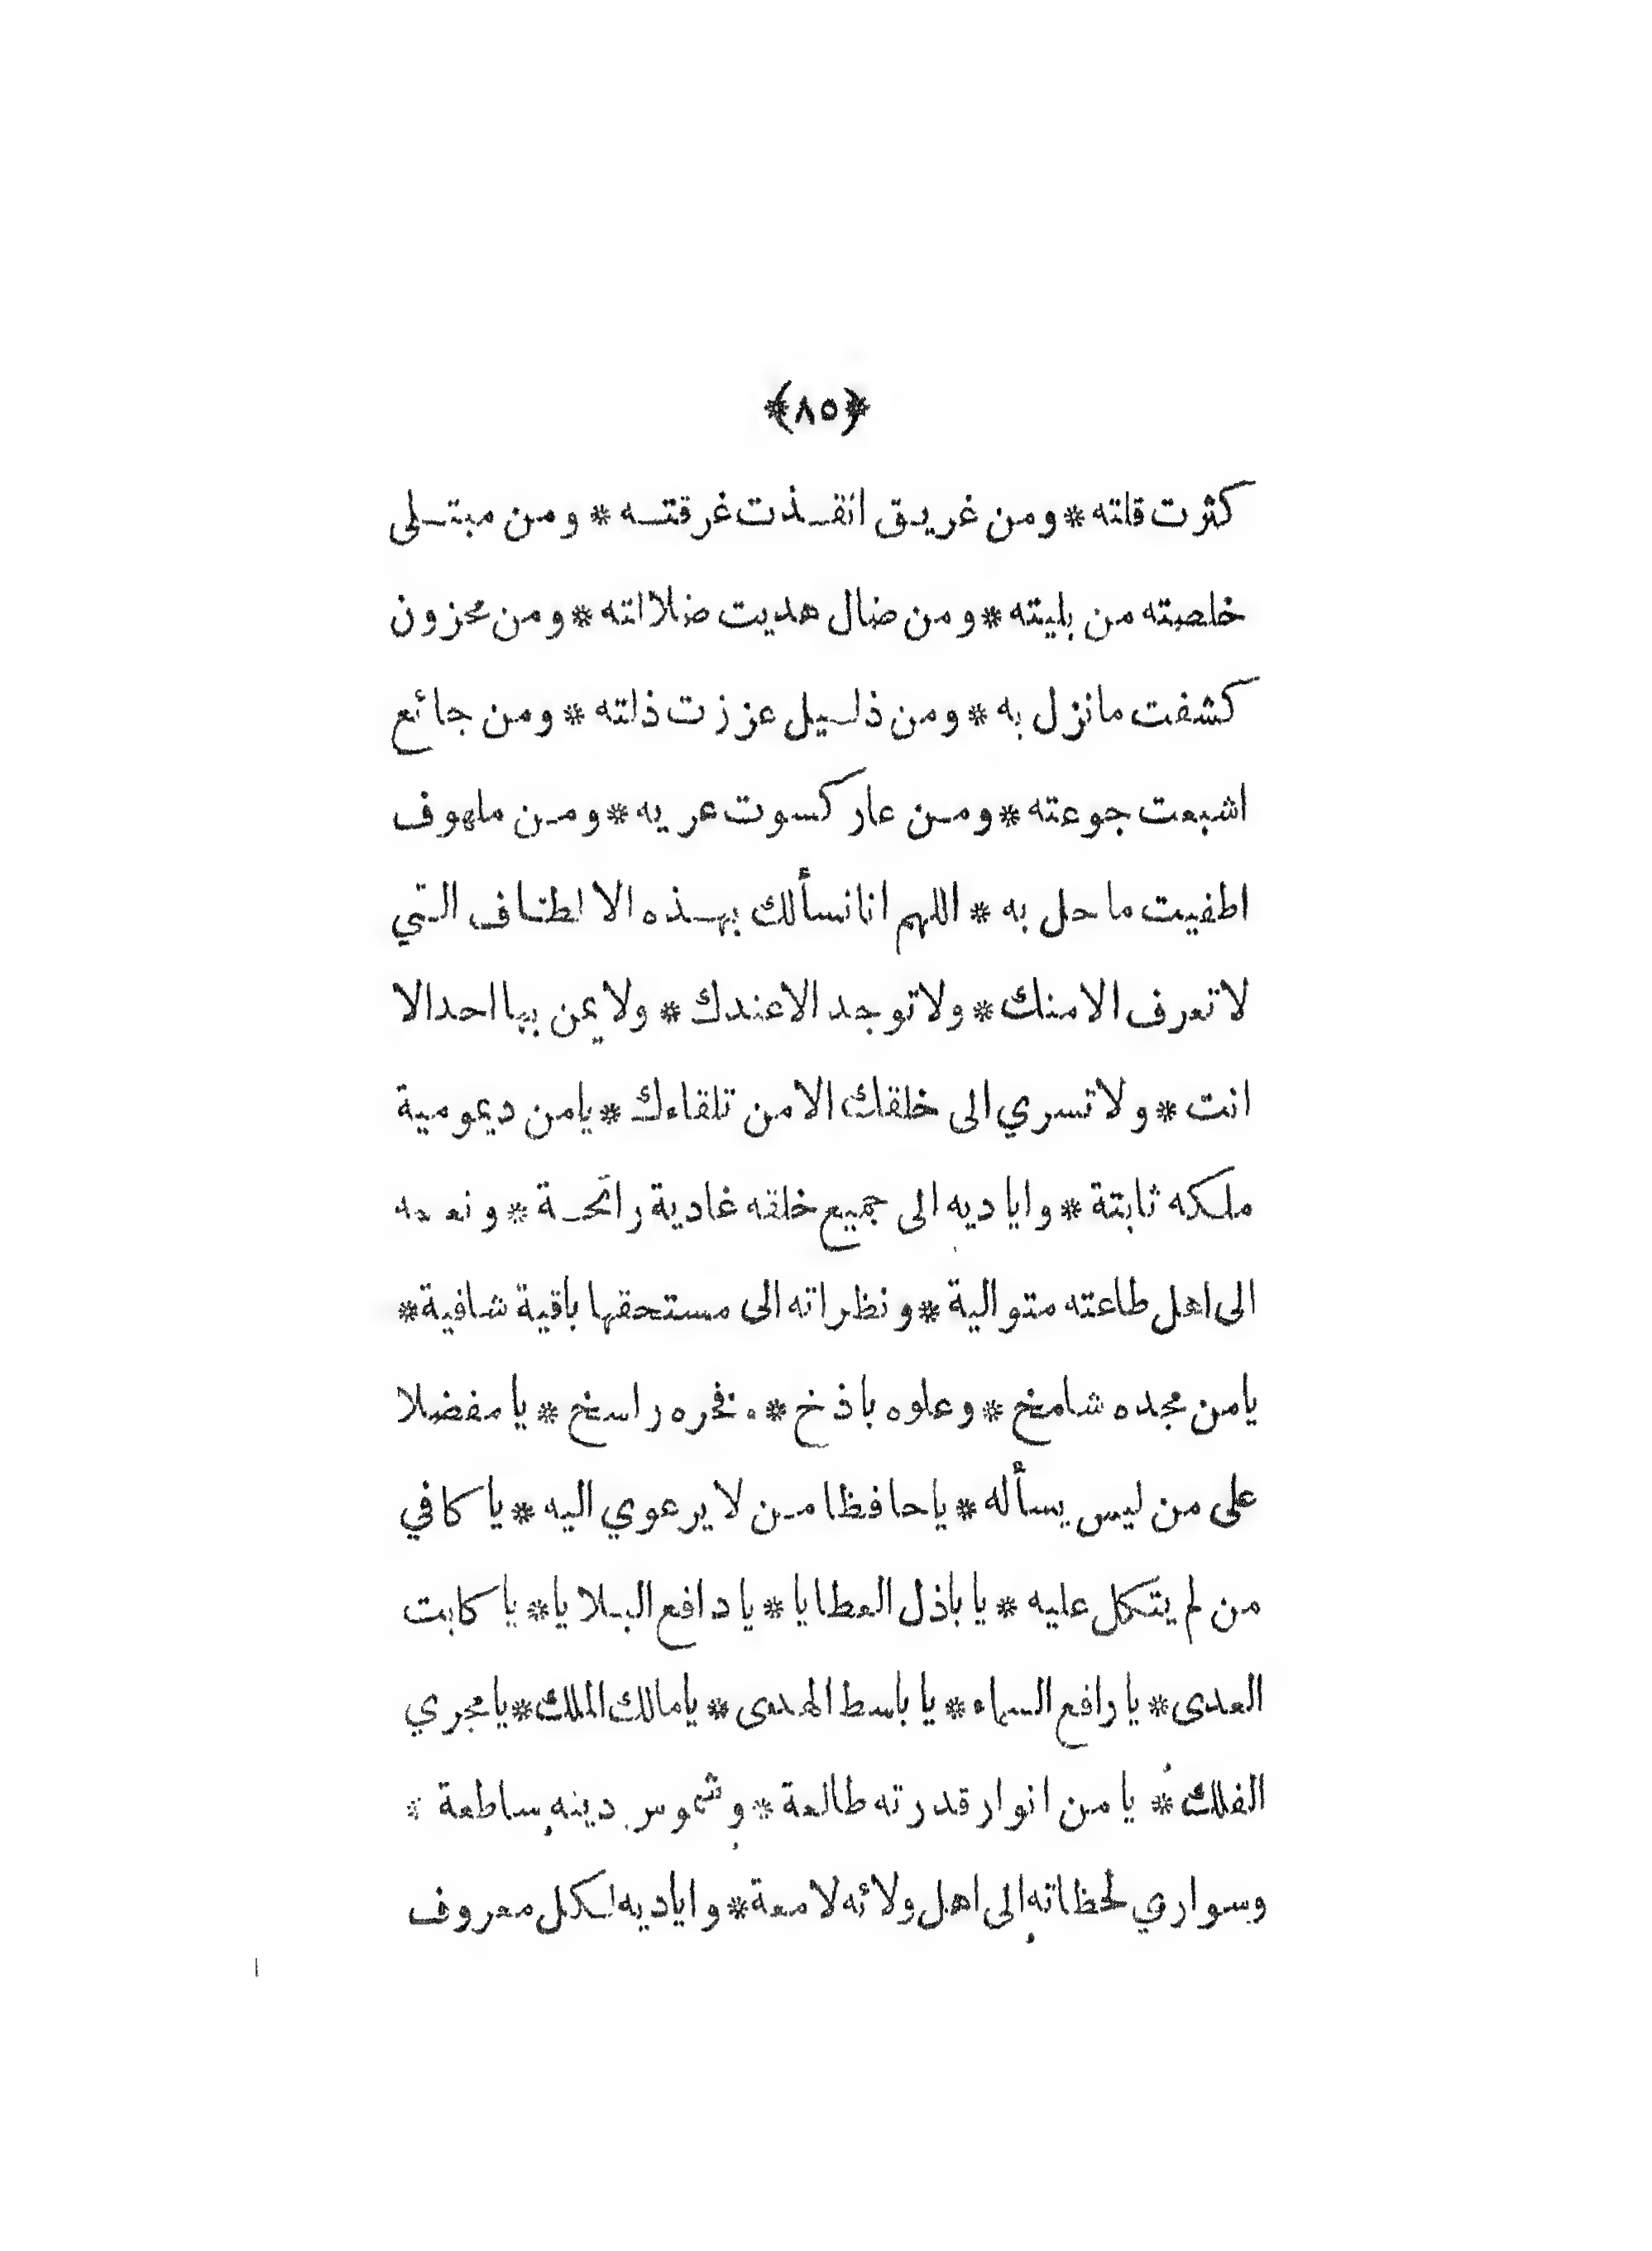 ﴿٨٥﴾
كثرت قلته * ومن غريق انقذت غرقته * ومن مبتلى
خلصته من بليته * ومن ضال هديت ضلالته * ومن محزون
كشفت مانزل به * ومن ذليل عززت ذلته * ومن جائع
اشبعت جوعته * ومن عار كسوت عريه * ومن ملهوف
اطفيت ماحل به * اللهم انانسألك بهذه الالطاف التي
لاتعرف الامنك * ولاتوجد الاعندك * ولايمن بها احدالا
انت * ولاتسري الى خلقك الامن تلقاءك * يامن ديمومية
ملكه ثابتة * واياديه الى جميع خلقه غادية رائحة * ونعمه
الى اهل طاعته متوالية * ونظراته الى مستحقها باقية شافية *
يامن مجده شامخ * وعلوه باذخ * وفخره راسخ * يا مفضلا
على من ليس يسأله * ياحافظا من لا يرعوي اليه * يا كافي
من لم يتكل عليه * يا باذل العطايا * يا دافع البلايا * يا كابت
العدى * يا رافع السماء * يا باسط الهدى * يامالك الملك * يا مجري
الفلك * يا من انوار قدرته طالعة * وشموس دينه ساطعة *
وسواري لحظاته الى اهل ولائه لامعة * واياديه لكل معروف